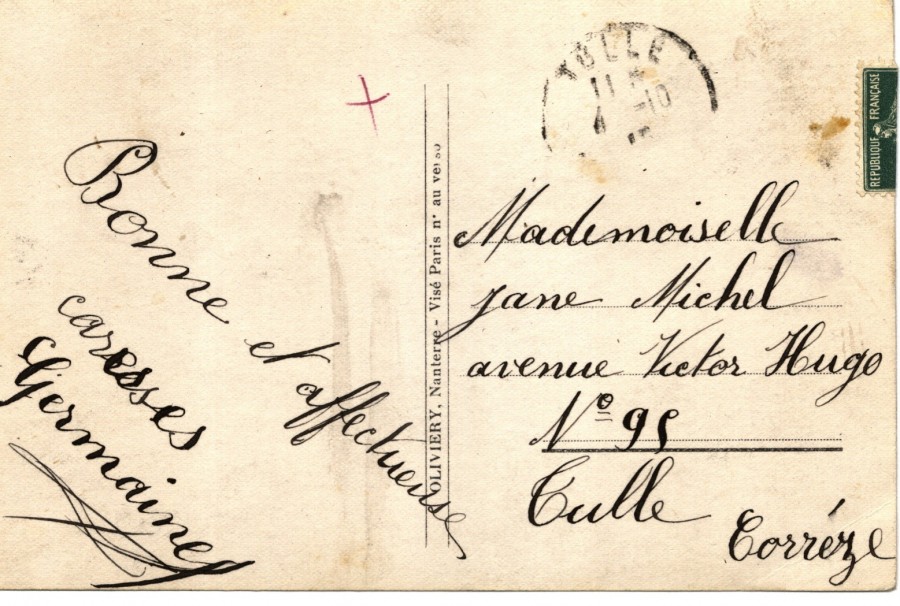 Bonne
et affectueuse
caresses
Germaine
OLIVIERY, Nanterre - Visé Paris n° au verso
TULLE
RÉPUBLIQUE FRANÇAISE
Mademoiselle
Jane Michel
avenue Victor Hugo
N° 95
Tulle
Corréze